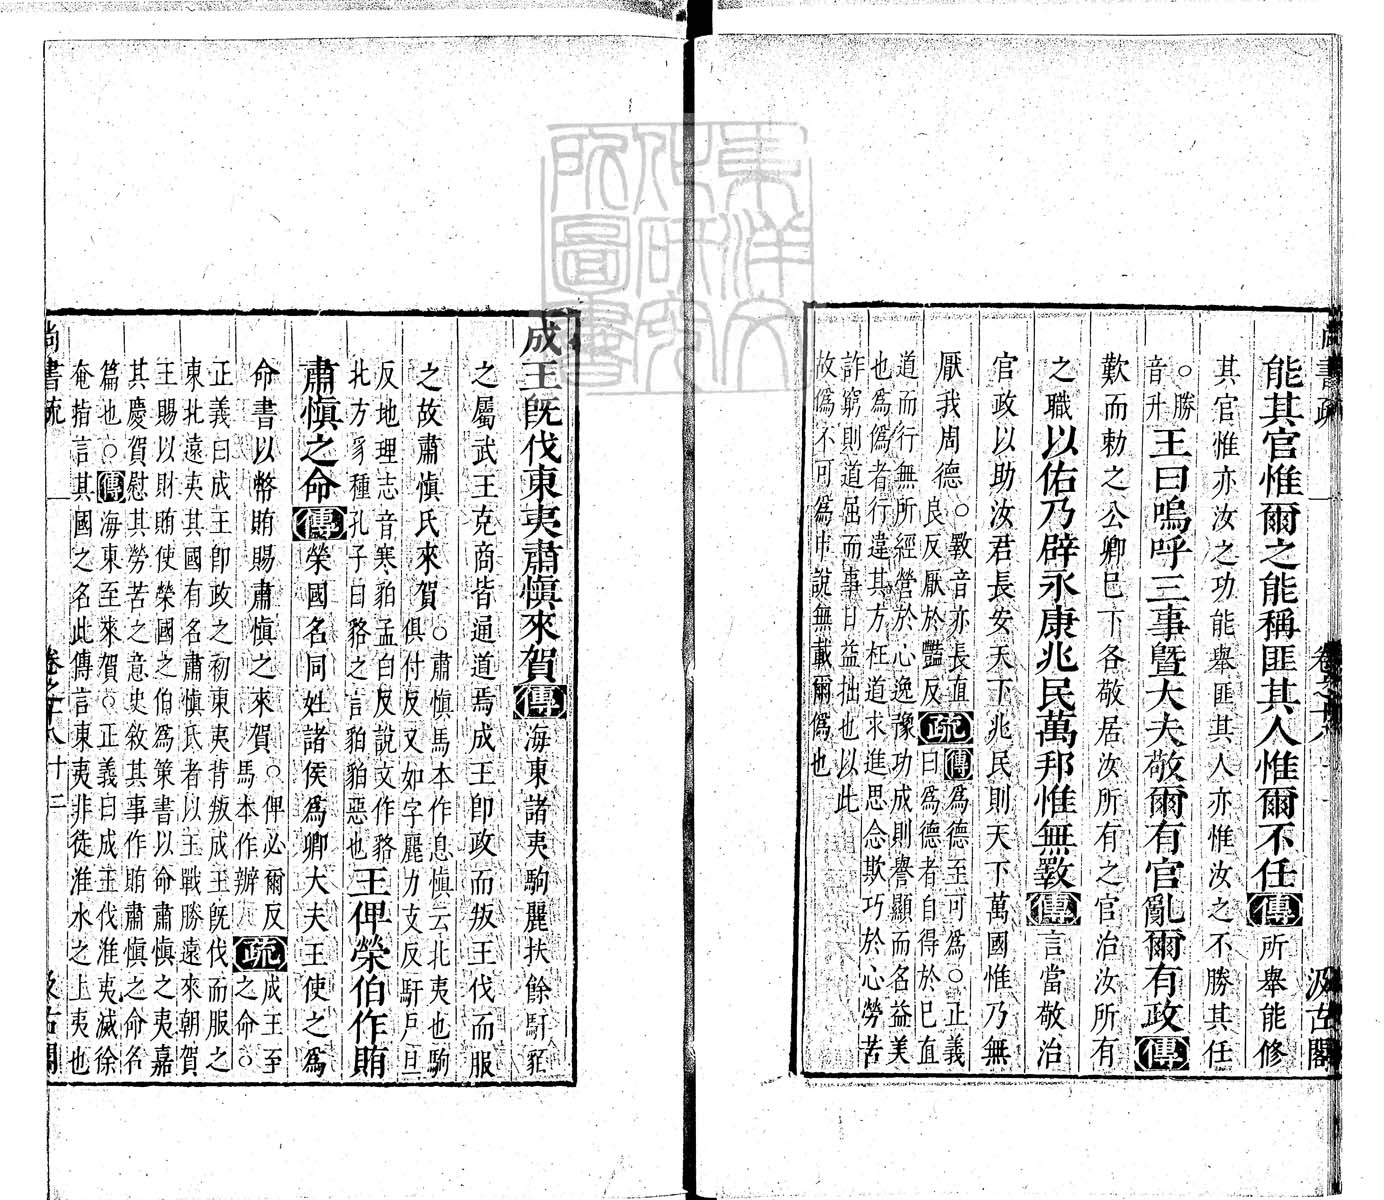 能其官惟爾之能稱匪其人惟爾不任傳所舉能修
其官惟亦汝之功能舉匪其人亦惟汝之不勝其任
○勝
音升王曰嗚呼三事曁大夫敬爾有官亂爾有政傳
歎而勅之公卿巳下各敬居汝所有之官治汝所有
之職以佑乃辟永康兆民萬邦惟無斁傳言當敬治
官政以助汝君長安天下兆民則天下萬國惟乃無
厭我周德○斁音亦長直
良反厭於豔反疏傳爲德至可爲○正義
曰爲德者自得於巳直
道而行無所經營於心逸豫功成則譽顯而名益美
也爲僞者行違其方枉道求進思念欺巧於心勞苦
詐窮則道屈而事日益拙也以此
故僞不可爲申說無載爾僞也
尚書疏
卷之十八
汲古閣
成王旣伐東夷肅愼來賀傳海東諸夷駒麗扶餘馯貊
之屬武王克商皆通道焉成王卽政而叛王伐而服
之故肅愼氏來賀○肅愼馬本作息愼云北夷也駒
俱付反又如字麗力支反馯戸旦
反地理志音寒貊孟白反說文作貉
北方豸種孔子曰貉之言貊貊惡也王俾榮伯作賄
肅愼之命傳榮國名同姓諸侯爲卿大夫王使之爲
命書以幣賄賜肅愼之來賀○俾必爾反
馬本作辨疏成王至
之命○
正義曰成王卽政之初東夷背叛成王旣伐而服之
東北遠夷其國有名肅愼氏者以王戰勝遠來朝賀
王賜以財賄使榮國之伯爲策書以命肅愼之夷嘉
其慶賀慰其勞苦之意史敘其事作賄肅愼之命名
篇也○傳海東至來賀○正義曰成王伐淮夷滅徐
奄指言其國之名此傳言東夷非徒淮水之上夷也
尚書疏
卷之十八
十三
汲古閣
東洋文
化研究
所圖書